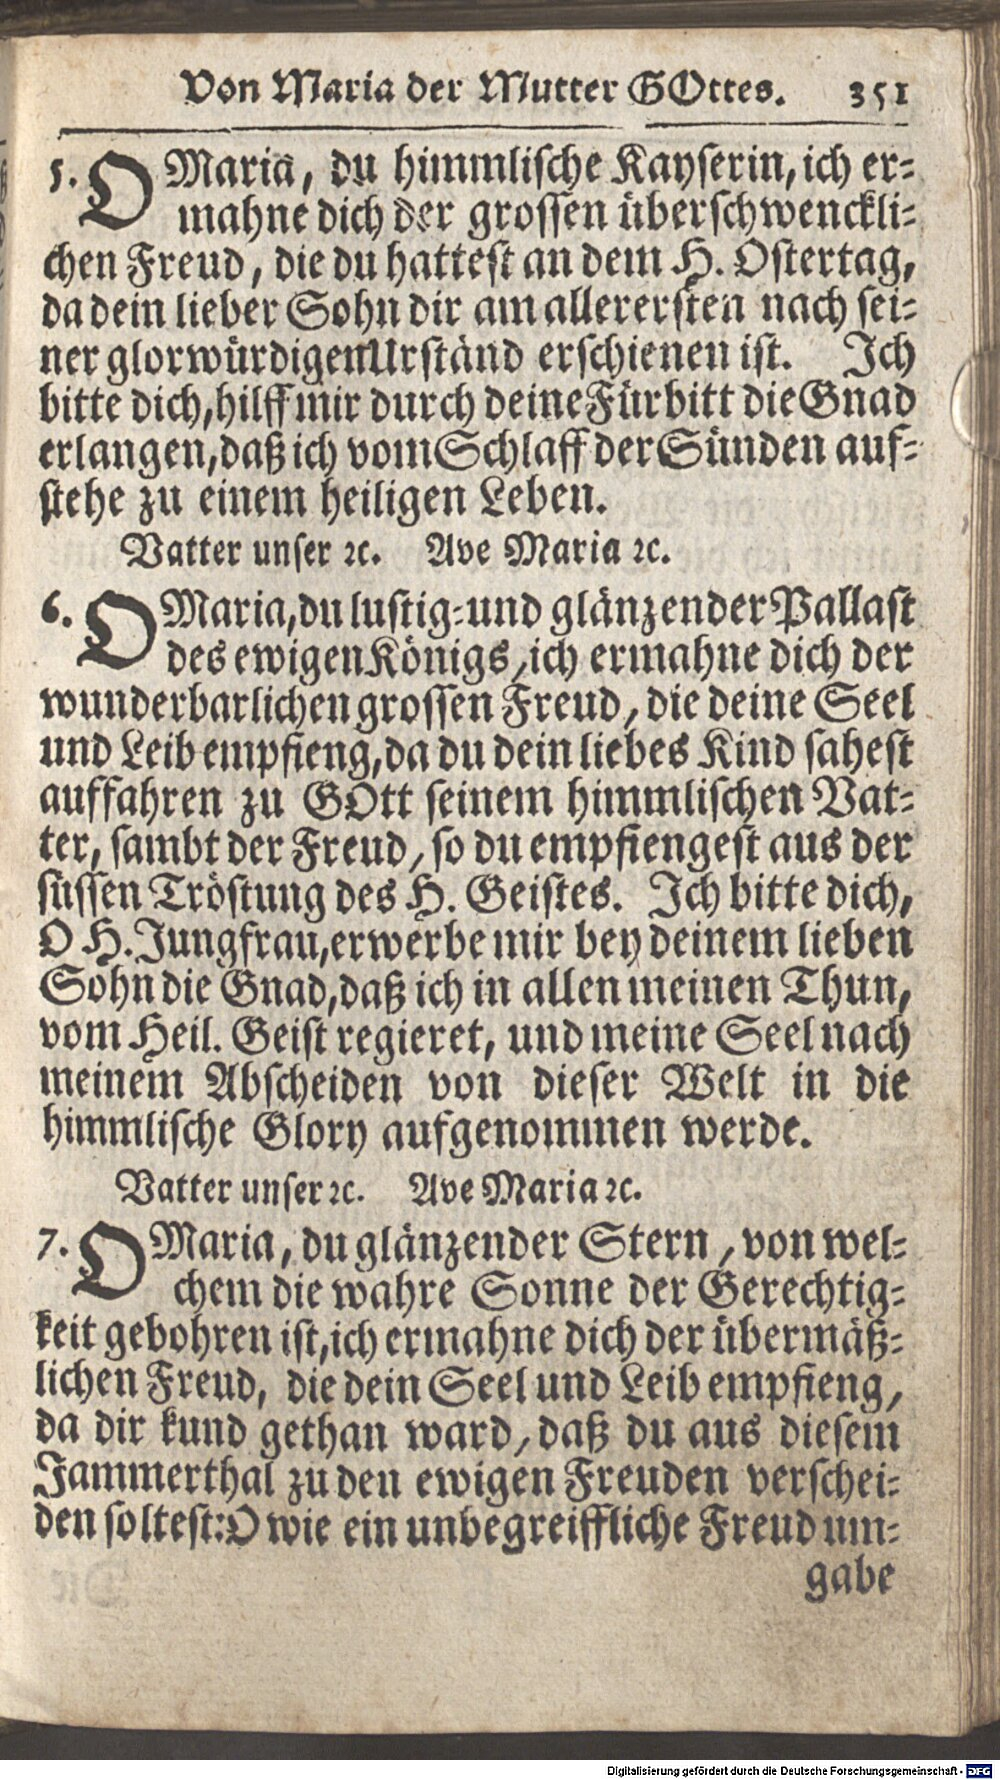 Von Maria der Mutter GOttes. 351
5. O Maria, du himmlische Kayserin, ich er-
mahne dich der grossen überschwenckli-
chen Freud, die du hattest an dem H. Ostertag,
da dein lieber Sohn dir am allerersten nach sei-
ner glorwürdigen Urständ erschienen ist. Ich
bitte dich, hilff mir durch deine Fürbitt die Gnad
erlangen, daß ich vom Schlaff der Sünden auf-
stehe zu einem heiligen Leben.
Vatter unser ꝛc. Ave Maria ꝛc.
6. O Maria, du lustig- und glänzender Pallast
des ewigen Königs, ich ermahne dich der
wunderbarlichen grossen Freud, die deine Seel
und Leib empfieng, da du dein liebes Kind sahest
auffahren zu GOtt seinem himmlischen Vat-
ter, sambt der Freud, so du empfiengest aus der
süssen Tröstung des H. Geistes. Ich bitte dich,
O H. Jungfrau, erwerbe mir bey deinem lieben
Sohn die Gnad, daß ich in allen meinen Thun,
vom Heil. Geist regieret, und meine Seel nach
meinem Abscheiden von dieser Welt in die
himmlische Glory aufgenommen werde.
Vatter unser ꝛc. Ave Maria ꝛc.
7. O Maria, du glänzender Stern, von wel-
chem die wahre Sonne der Gerechtig-
keit gebohren ist, ich ermahne dich der übermäß-
lichen Freud, die dein Seel und Leib empfieng,
da dir kund gethan ward, daß du aus diesem
Jammerthal zu den ewigen Freuden verschei-
den soltest: O wie ein unbegreiffliche Freud um-
gabe
Digitalisierung gefördert durch die Deutsche Forschungsgemeinschaft - DFG